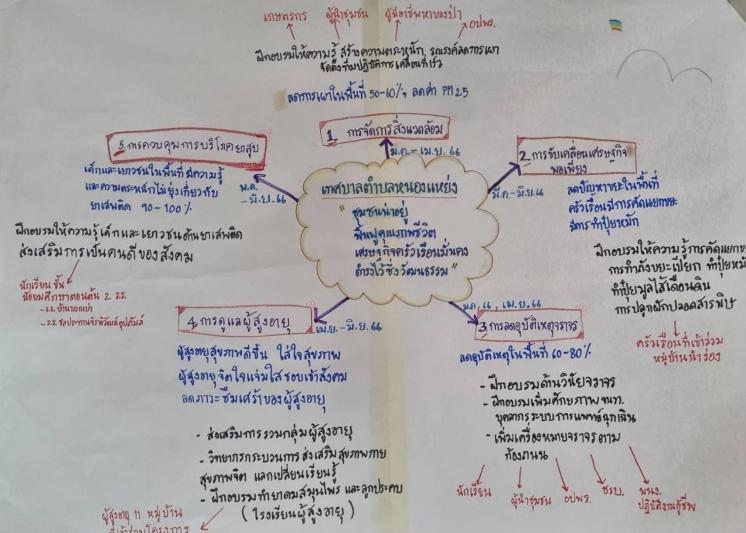 เกษตรกร ผู้นำชุมชน ผู้มีอาชีพหาของป่า
อปพร.
ฝึกอบรมให้ความรู้ สร้างความตระหนัก, รณรงค์ลดการเผา
จัดตั้งทีมปฏิบัติการเคลื่อนที่เร็ว
ลดการเผาในพื้นที่ 50-60%, ลดค่า PM 2.5
1. การจัดการสิ่งแวดล้อม
ม.ค. - เม.ย. 66
เทศบาลตำบลหนองแหย่ง
"ชุมชนน่าอยู่
ฟื้นฟูคุณภาพชีวิต
เศรษฐกิจครัวเรือนมั่นคง
ดำรงไว้ซึ่งวัฒนธรรม"
2. การขับเคลื่อนเศรษฐกิจ
พอเพียง
มี.ค. - มิ.ย. 66
ลดปัญหาขยะในพื้นที่
ครัวเรือนมีการคัดแยกขยะ
มีการทำปุ๋ยหมัก
ฝึกอบรมให้ความรู้การคัดแยกขยะ
การทำถังขยะเปียก ทำปุ๋ยหมัก
ทำปุ๋ยมูลไส้เดือนดิน
การปลูกผักปลอดสารพิษ
ครัวเรือนที่เข้าร่วม
หมู่บ้านนำร่อง
3. การลดอุบัติเหตุจราจร
ม.ค. 66, เม.ย. 66
ลดอุบัติเหตุในพื้นที่ 60-80%
- ฝึกอบรมด้านวินัยจราจร
- ฝึกอบรมเพิ่มศักยภาพ จนท.
บุคลากรระบบการแพทย์ฉุกเฉิน
- เพิ่มเครื่องหมายจราจรตาม
ท้องถนน
นักเรียน ผู้นำชุมชน อปพร. ชรบ. พนง.
ปฏิบัติงานกู้ชีพ
4. การดูแลผู้สูงอายุ
เม.ย. - มิ.ย. 66
ผู้สูงอายุสุขภาพดีขึ้น ใส่ใจสุขภาพ
ผู้สูงอายุจิตใจแจ่มใส ชอบเข้าสังคม
ลดภาวะซึมเศร้าของผู้สูงอายุ
- ส่งเสริมการรวมกลุ่มผู้สูงอายุ
- วิทยากรกระบวนการ ส่งเสริมสุขภาพกาย
สุขภาพจิต แลกเปลี่ยนเรียนรู้
- ฝึกอบรมทำยาดมสมุนไพร และลูกประคบ
(โรงเรียนผู้สูงอายุ)
ผู้สูงอายุ 11 หมู่บ้าน
ที่เข้าร่วมโครงการ
5. การควบคุมการบริโภคยาสูบ
พ.ค. - มิ.ย. 66
เด็กและเยาวชนในพื้นที่มีความรู้
และความตระหนักไม่ยุ่งเกี่ยวกับ
ยาเสพติด 90-100%
ฝึกอบรมให้ความรู้เด็กและเยาวชนด้านยาเสพติด
ส่งเสริมการเป็นคนดีของสังคม
นักเรียน ชั้น
มัธยมศึกษาตอนต้น 2 รร.